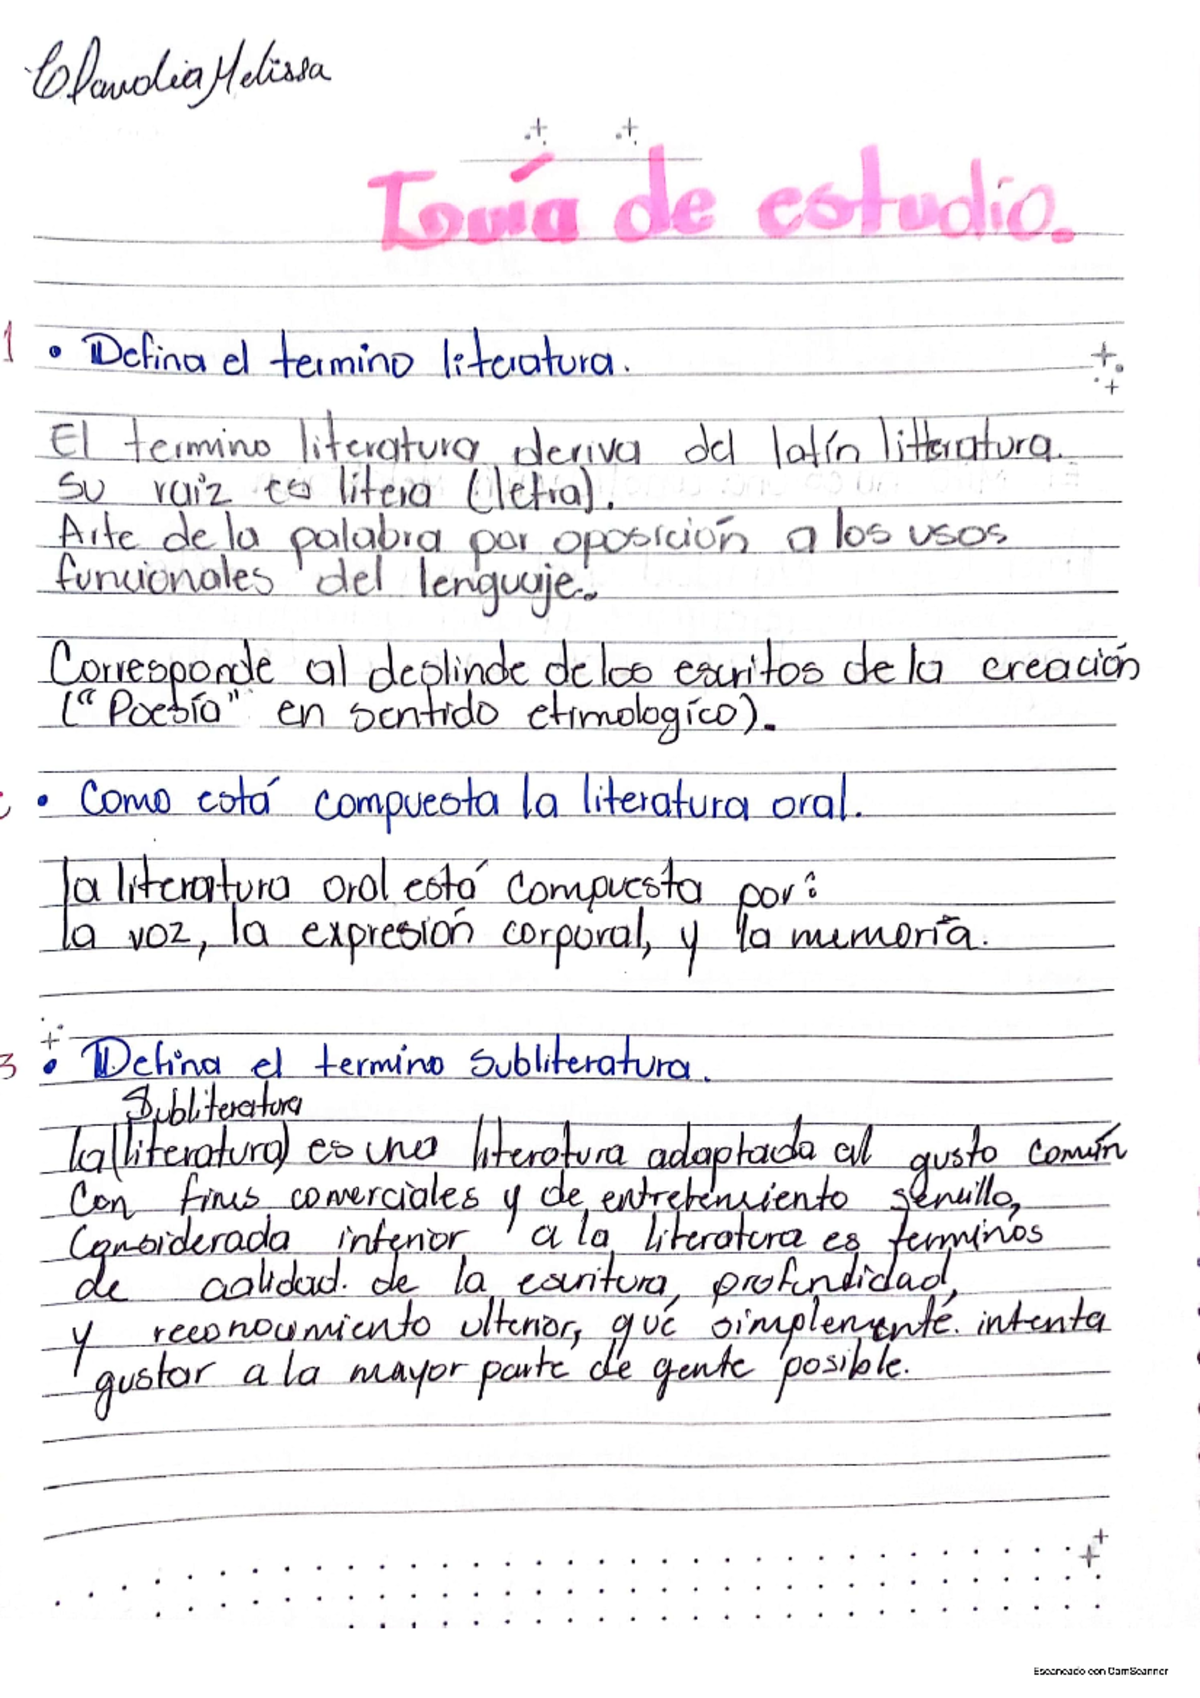 Claudia Melissa
Guía de estudio.
1 • Defina el termino literatura.
El termino literatura deriva del latín litteratura.
Su raíz es litera (letra).
Arte de la palabra por oposición a los usos
funcionales del lenguaje.
Corresponde al deslinde de los escritos de la creación
("Poesía" en sentido etimologíco).
• Como está compuesta la literatura oral.
la literatura oral está compuesta por:
la voz, la expresión corporal, y la memoria.
3 • Defina el termino Subliteratura.
Subliteratura
la (literatura) es una literatura adaptada al gusto común
con fines comerciales y de entretenimiento sencillo,
Considerada inferior a la literatura es terminos
de calidad. de la escritura, profundidad,
y reconocimiento ulterior, qué simplemente intenta
gustar a la mayor parte de gente posible.
Escaneado con CamScanner